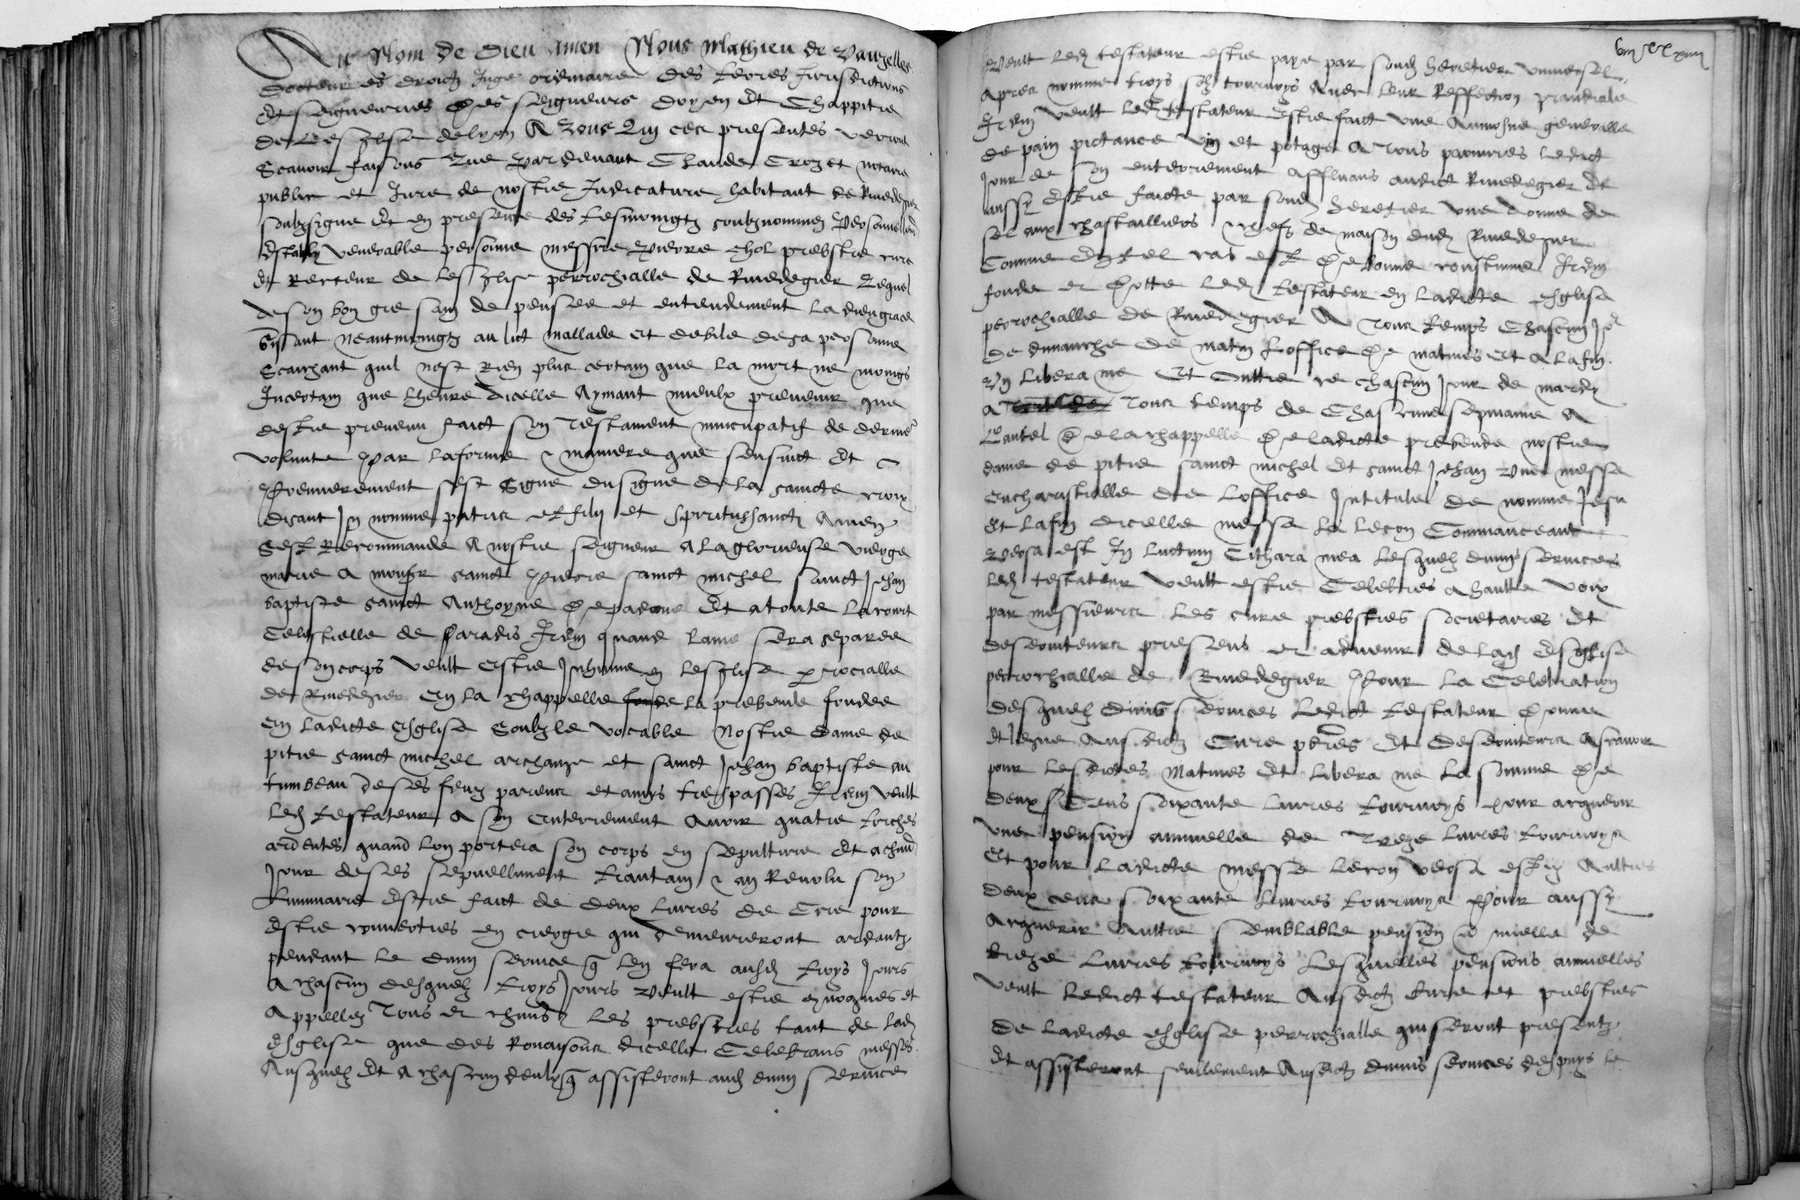 Au Nom de Dieu Amen Nous Mathieu de Vauzelles
docteur es droictz Juge ordinaire des terres Jurisdictions
et seigneuries de messeigneurs doyen et Chappitre
de Lesglise de lyon A Tous Qui ces presentes verront
Scavoir faisons Que Pardevant Claude Crozet notaire
public et Jure de nostre Judicature habitant de Rivedegier
soubzsigne Et en presence des tesmoingtz soubznommez Personnellement
Establi venerable personne messire Pierre Chol prebstre cure
et Recteur de Lesglise perrochialle de Rivedegier Lequel
de son bon gre sain de pensee et entendement La dieu grace
Gisant neantmoingtz au lict mallade et debile de sa personne
Scaichant quil nest Rien plus certain que La mort ne moings
Incertain que Lheure dicelle Aymant mieulx prevenir que
destre prevenu faict son Testament nuncupatif de derniere
volunte Par Laforme & maniere que sensuict Et
Premierement sest Signe du signe de La saincte croix
disant In nomine patris et filij et spiritussancti Amen
Sest Recommande A nostre seigneur A La glorieuse vierge
marie A monsr sainct Pierre sainct michel sainct Jehan
baptiste sainct Anthoyne de padoue Et a toute La court
Celestielle de Paradis Item quand Lame sera separee
de son corps veult Estre Inhume en Lesglise parrocialle
de Rivedegier En La chappelle fonde La prebende fondee
En Ladicte Esglise Soubz le vocable Nostre dame de
pitie sainct michel archange et sainct Jehan baptiste au
tumbeau de ses feuz parens et amys trespasses Item veult
Led testateur A son Enterrement Avoir quatre torches
ardentes quand lon portera son corps en sepulture Et a chun
Jour de ses sepvellimens trantain & an Revolu son
Luminaire Estre faict de deux Livres de Cire pour
Estre converties en cierge qui demeureront ardantz
pendant le divin service q Len fera ausd troys Jours
A chascun desquelz troys Jours Veult estre convoques et
Appellez Tous et chuns Les prebstres tant de lad
Esglise que des Rouaisons dicelle Celebrans messes
Ausquelz Et A chascun deulx q assisteront aud divin service
viii xx xiiii
Veult Led testateur estre paye par sond heretier universel
Apres nomme troys solz tournoys Avec Leur Reffection prandiale
Item veult Led testateur Estre faict une Aumosne generalle
de pain pictance vin et potage A tous pauvres Ledict
Jour de son enterrement affluans audict Rivedegier Et
aussy Estre faicte par sond heretier une donne de
sel aux chastailliers chefz de maison dud Rivedegier
Comme En tel cas est de bonne coustume Item
fonde et dotte Led testateur en Ladicte Esglise
perrochialle de Rivedegier A Tous temps Chascun Jor
de dimanche de matin Loffice de matines Et A Lafin
Un Libera me Et Oultre ce chascun Jour de mardy
A Tous temps de Chascune sepmaine A
Lautel de la chappelle de ladicte prebende nostre
dame de pitie sainct michel Et sainct Jehan Une messe
Eucharistialle de Loffice Intitule de nomine Jesu
Et Lafin dicelle messe La Lecon Commanceant
Versa est In Luctum Cithara mea Lesquelz divins services
Led testateur veult estre Celebres a haulte voix
par messieurs Les cure prebstres societaires Et
desservteurs presens et advenir de Lad Esglise
perrochialle de Rivedegier Pour La Celebration
desquelz divins services Ledict testateur donne
Et legue Ausdictz Cure pbres Et desservteurs Ascavoir
pour Lesdictes Matines Et Libera me La somme de
deux Cens soixante Livres tournoys pour acquerir
Une pension annuelle de Treze Livres tournoys
Et pour Ladicte messe Lecon versa est Aultres
deux cens soixante Livres tournoys Pour aussy
Acquerir Aultre semblable pension annuelle de
treze Livres tournoys Lesquelles pensions annuelles
veult Ledict testateur Ausdictz Cure et prebstres
de Ladicte Esglise perrochialle qui seront presentz
Et assisteront seullement Ausdictz divins services despuys le